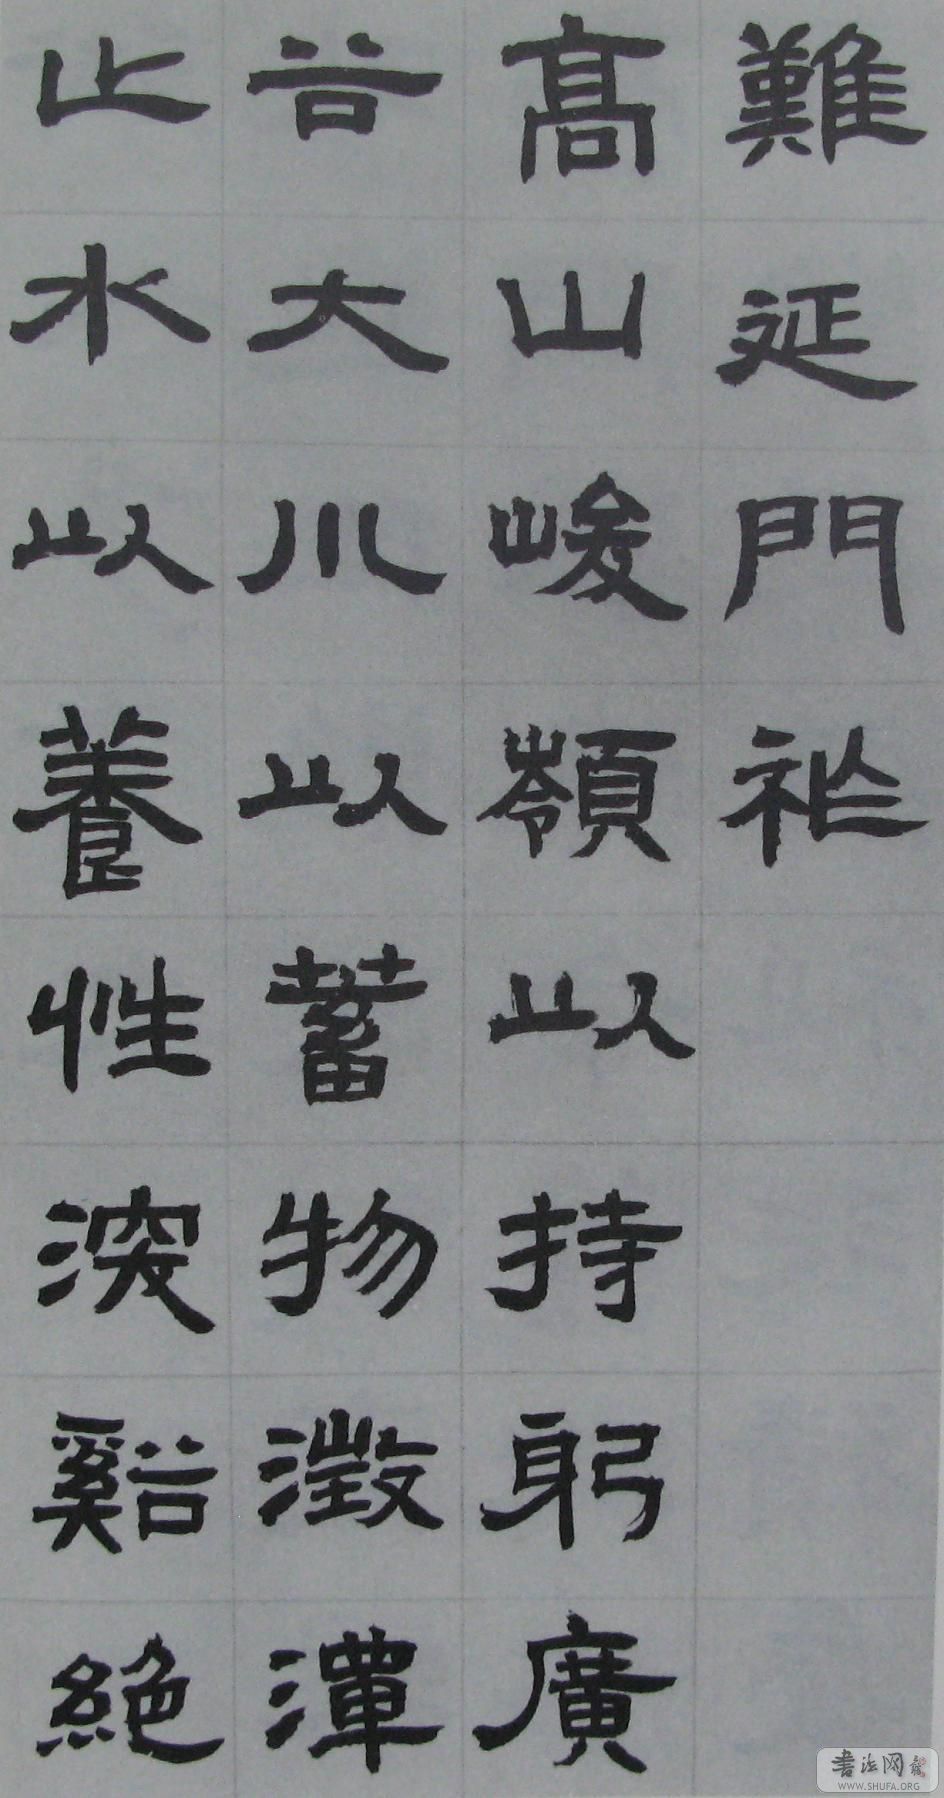 難延門祚
高山峻嶺以持躬廣
谷大川以蓄物澂潭
止水以養性深谿絕
书法网
WWW.SHUFA.ORG